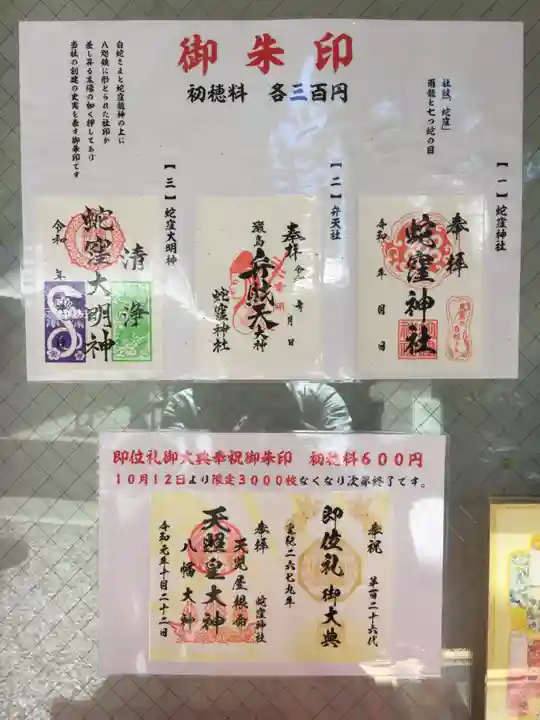 御朱印
初穂料 各三百円
【一】蛇窪神社
社紋「蛇窪」
雨龍と七つ蛇の目
奉拝
蛇窪神社
令和 年 月 日
【二】弁天社
奉拝
令和 年 月 日
厳島弁財天大神
蛇窪神社
【三】蛇窪大明神
白蛇さまと蛇窪龍神の上に
八咫鏡に形どられた社印が
差し昇る太陽の如く押してあり
当社の創建の史実を表す御朱印です
清浄
蛇窪大明神
令和 年
即位礼御大典奉祝御朱印 初穂料600円
10月12日より限定3000枚なくなり次第終了です。
奉祝
第百二十六代
即位礼御大典
皇紀二六七九年
奉拝
蛇窪神社
天児屋根命
天照皇大神
八幡大神
令和元年十月二十二日